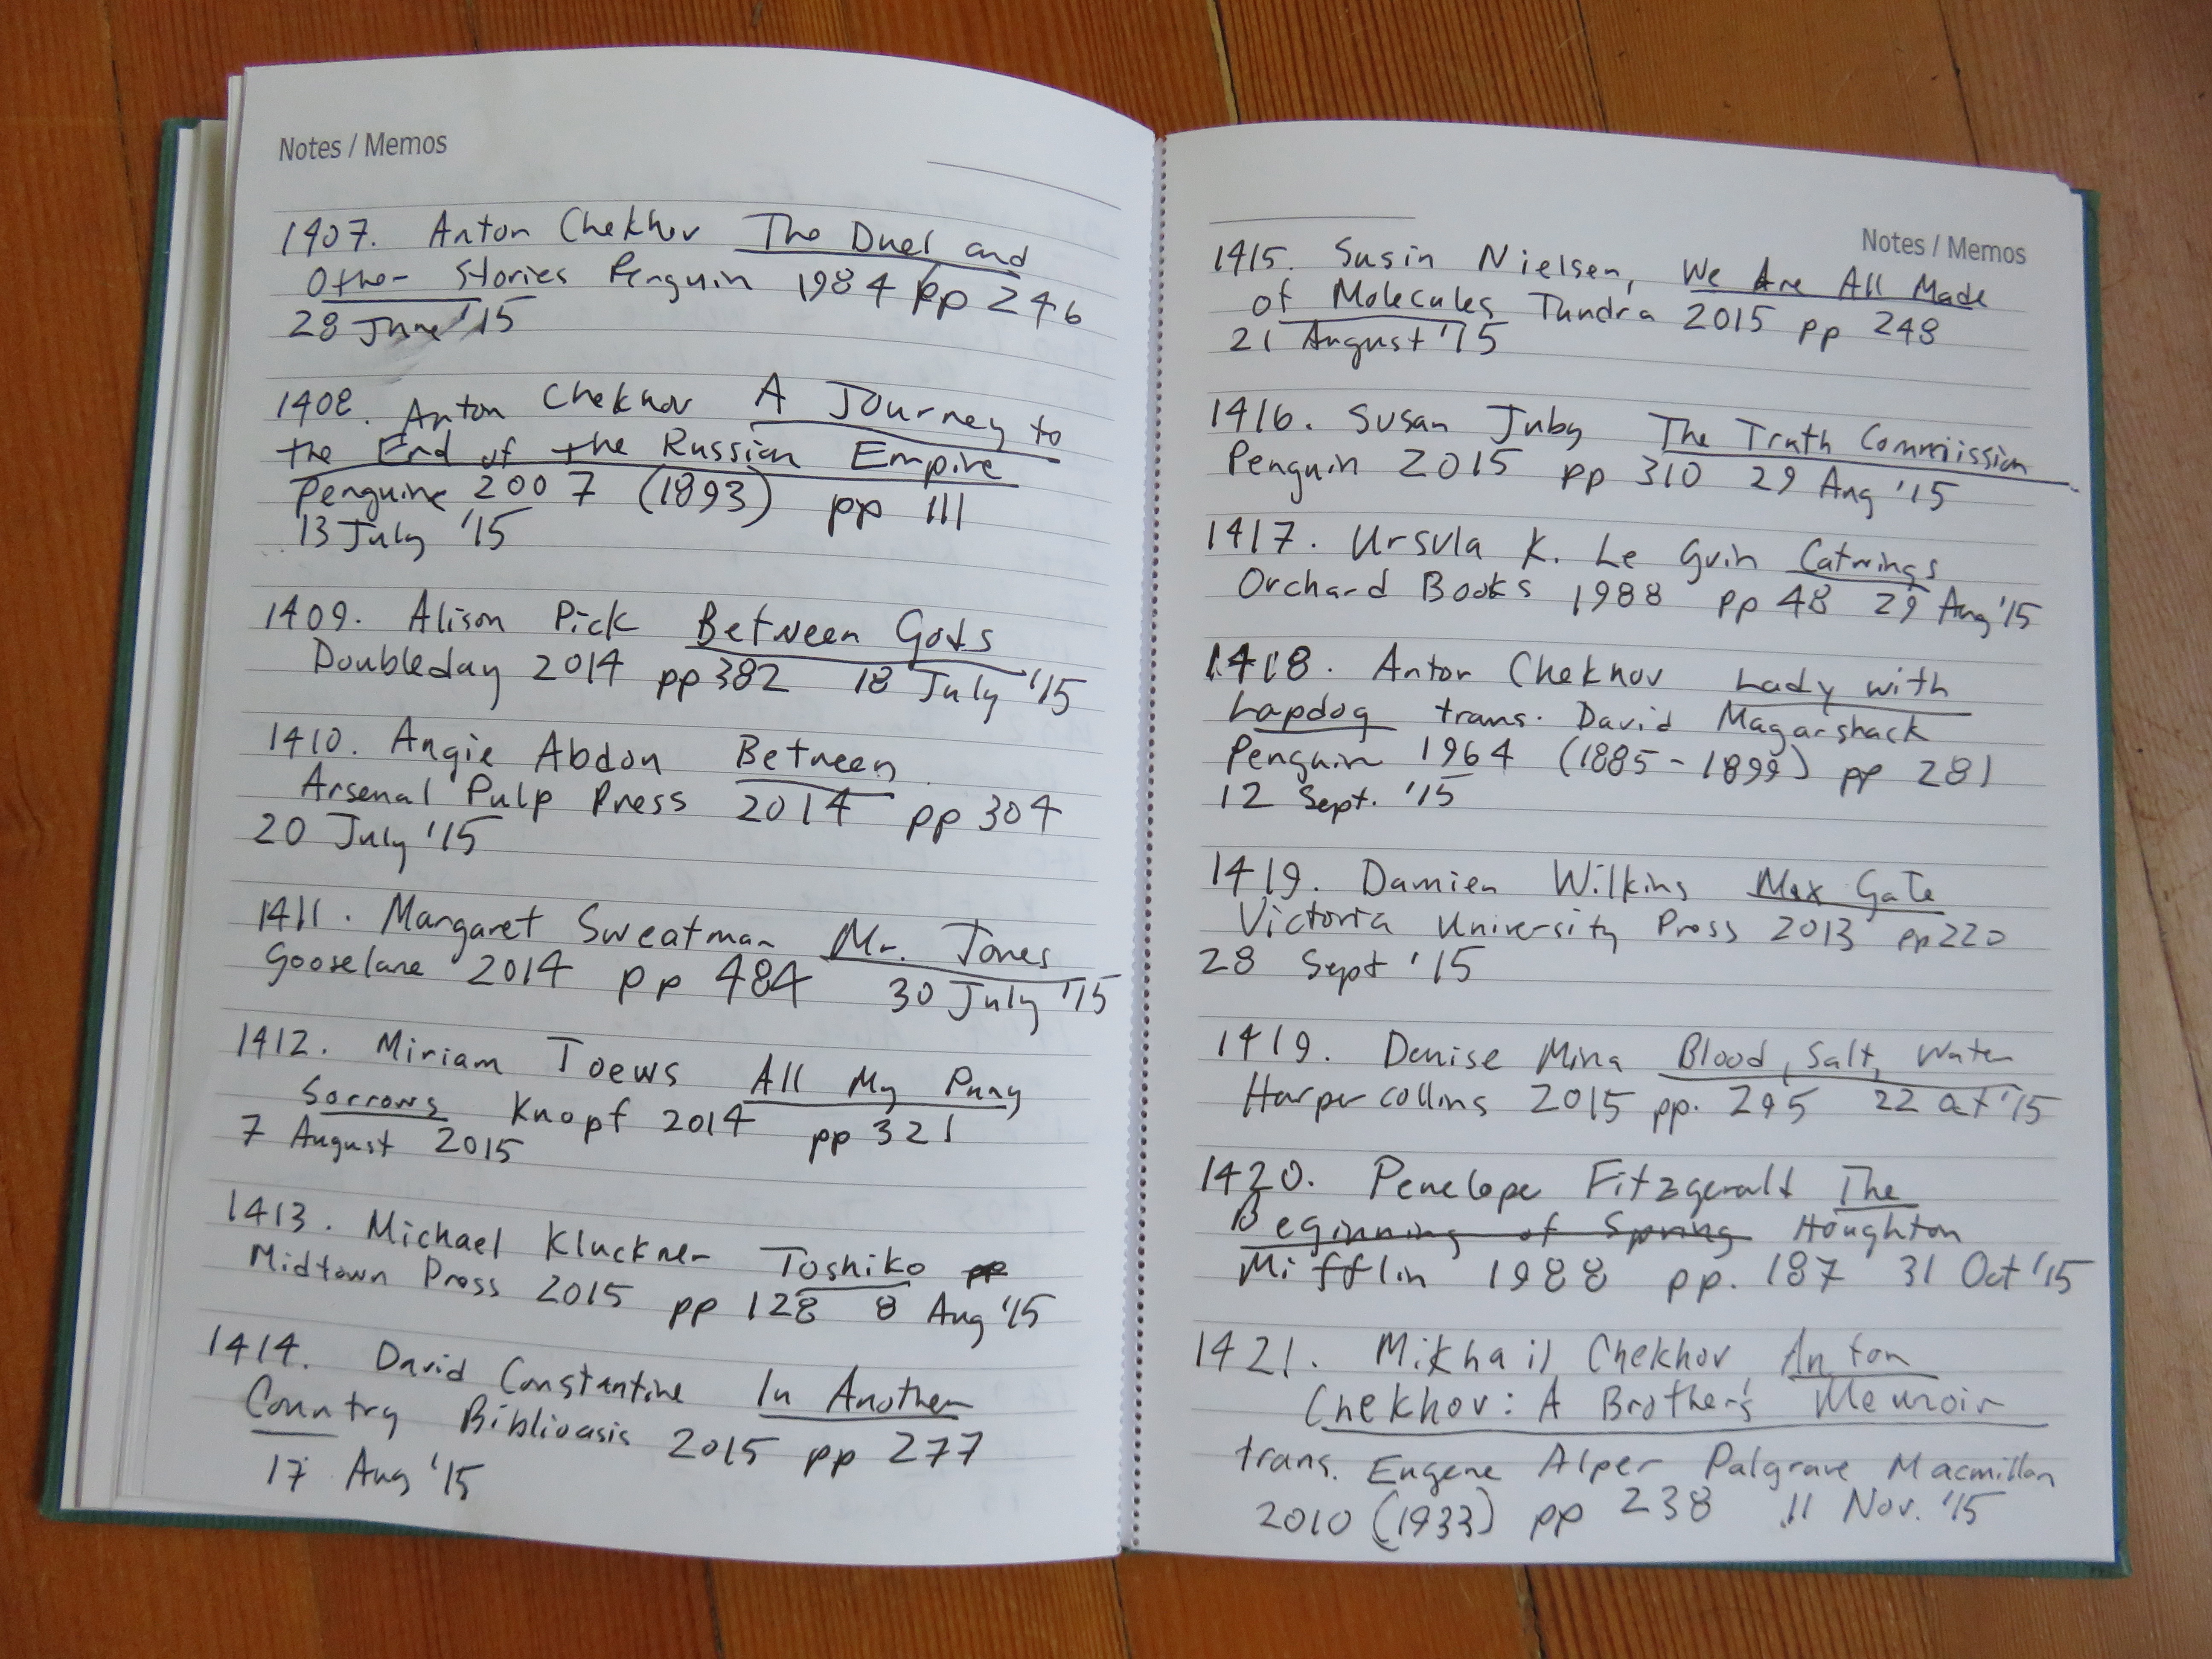 Notes / Memos
1407. Anton Chekhov The Duel and
Other Stories Penguin 1984 pp 246
28 June '15
1408. Anton Chekhov A Journey to
the End of the Russian Empire
Penguine 2007 (1893) pp 111
13 July '15
1409. Alison Pick Between Gods
Doubleday 2014 pp 382 18 July '15
1410. Angie Abdon Between
Arsenal Pulp Press 2014 pp 304
20 July '15
1411. Margaret Sweatman Mr. Jones
Gooselane 2014 pp 484 30 July '15
1412. Miriam Toews All My Puny
Sorrows Knopf 2014 pp 321
7 August 2015
1413. Michael Kluckner Toshiko pp
Midtown Press 2015 pp 128 8 Aug '15
1414. David Constantine In Another
Country Biblioasis 2015 pp 277
17 Aug '15
Notes / Memos
1415. Susin Nielsen, We Are All Made
of Molecules Tundra 2015 pp 248
21 August '15
1416. Susan Juby The Truth Commiission
Penguin 2015 pp 310 29 Aug '15
1417. Ursula K. Le Guin Catwings
Orchard Books 1988 pp 48 29 Aug '15
1418. Anton Chekhov Lady with
Lapdog trans. David Magarshack
Penguin 1964 (1885-1899) pp 281
12 Sept. '15
1419. Damien Wilkins Max Gate
Victoria University Press 2013 pp 220
28 Sept '15
1419. Denise Mina Blood, Salt, Water
Harpercollins 2015 pp. 295 22 Oct '15
1420. Penelope Fitzgerald The
Beginning of Spring Houghton
Mifflin 1988 pp. 187 31 Oct '15
1421. Mikhail Chekhov Anton
Chekhov: A Brother's Memoir
trans. Eugene Alper Palgrave Macmillan
2010 (1933) pp 238 11 Nov. '15